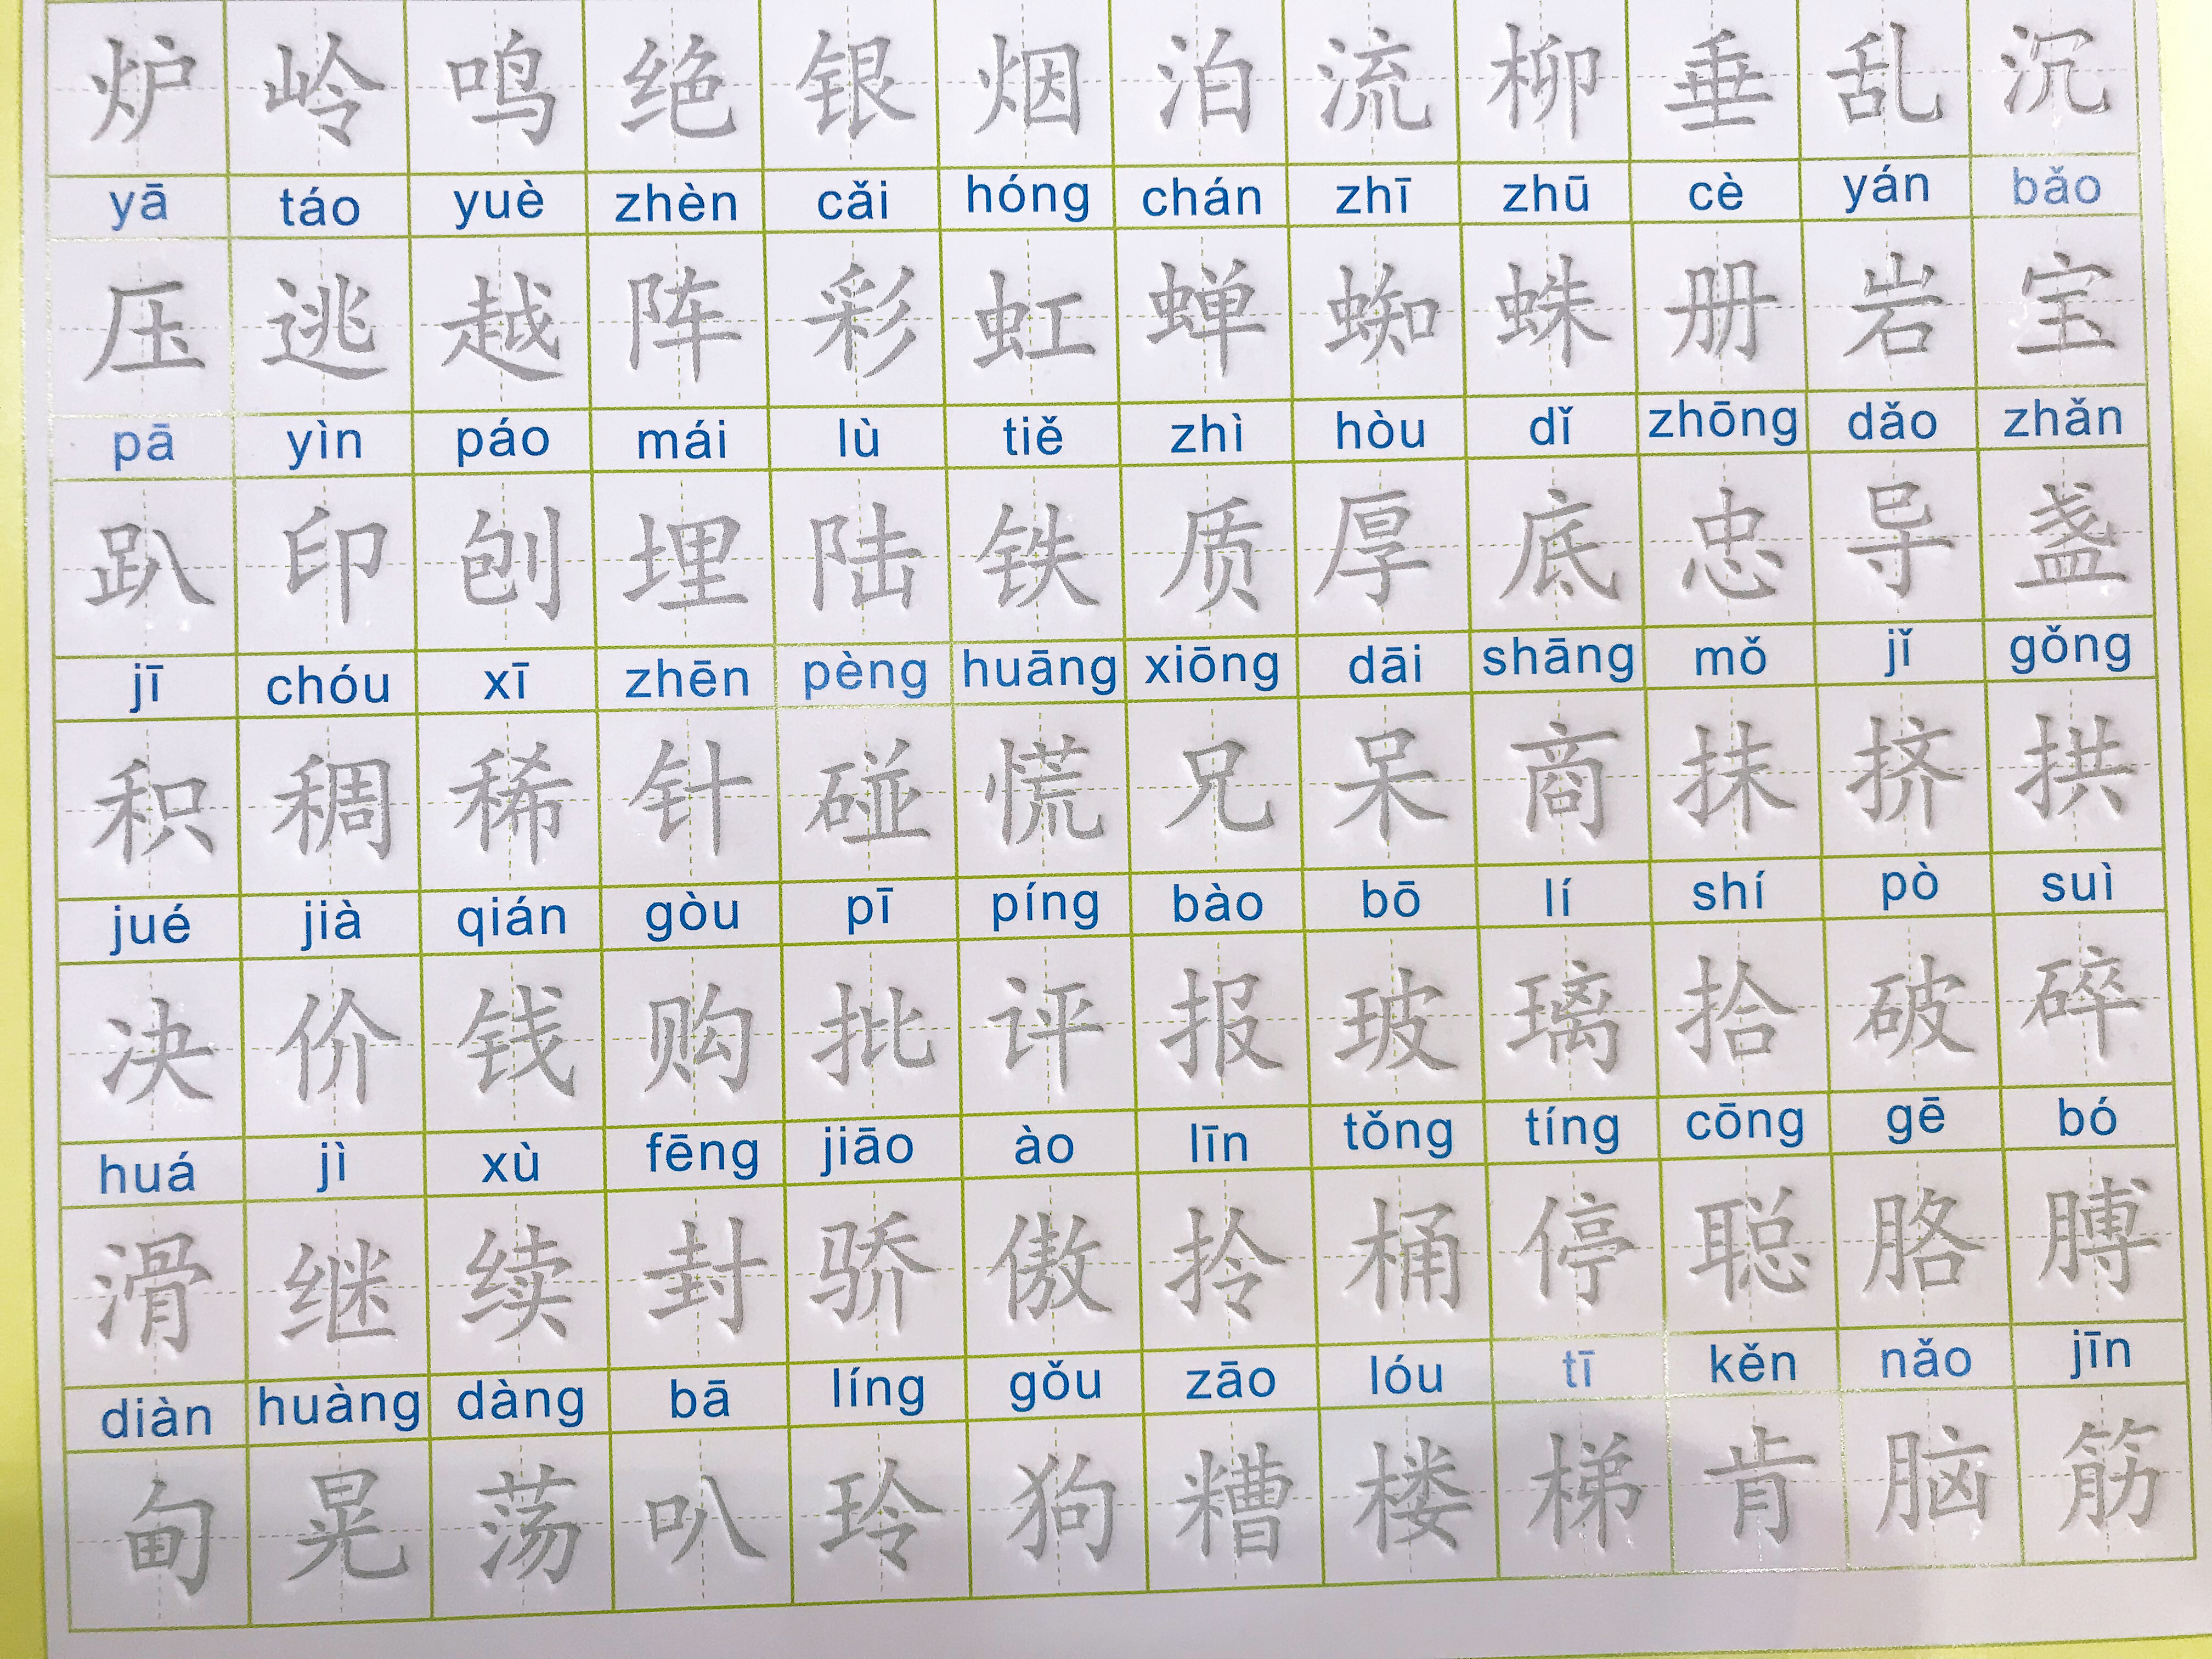 炉 岭 鸣 绝 银 烟 泊 流 柳 垂 乱 沉
yā táo yuè zhèn cǎi hóng chán zhī zhū cè yán bǎo
压 逃 越 阵 彩 虹 蝉 蜘 蛛 册 岩 宝
pā yìn páo mái lù tiě zhì hòu dǐ zhōng dǎo zhǎn
趴 印 刨 埋 陆 铁 质 厚 底 忠 导 盏
jī chóu xī zhēn pèng huāng xiōng dāi shāng mǒ jǐ gǒng
积 稠 稀 针 碰 慌 兄 呆 商 抹 挤 拱
jué jià qián gòu pī píng bào bō lí shí pò suì
决 价 钱 购 批 评 报 玻 璃 拾 破 碎
huá jì xù fēng jiāo ào līn tǒng tíng cōng gē bó
滑 继 续 封 骄 傲 拎 桶 停 聪 胳 膊
diàn huàng dàng bā líng gǒu zāo lóu tī kěn nǎo jīn
甸 晃 荡 叭 玲 狗 糟 楼 梯 肯 脑 筋